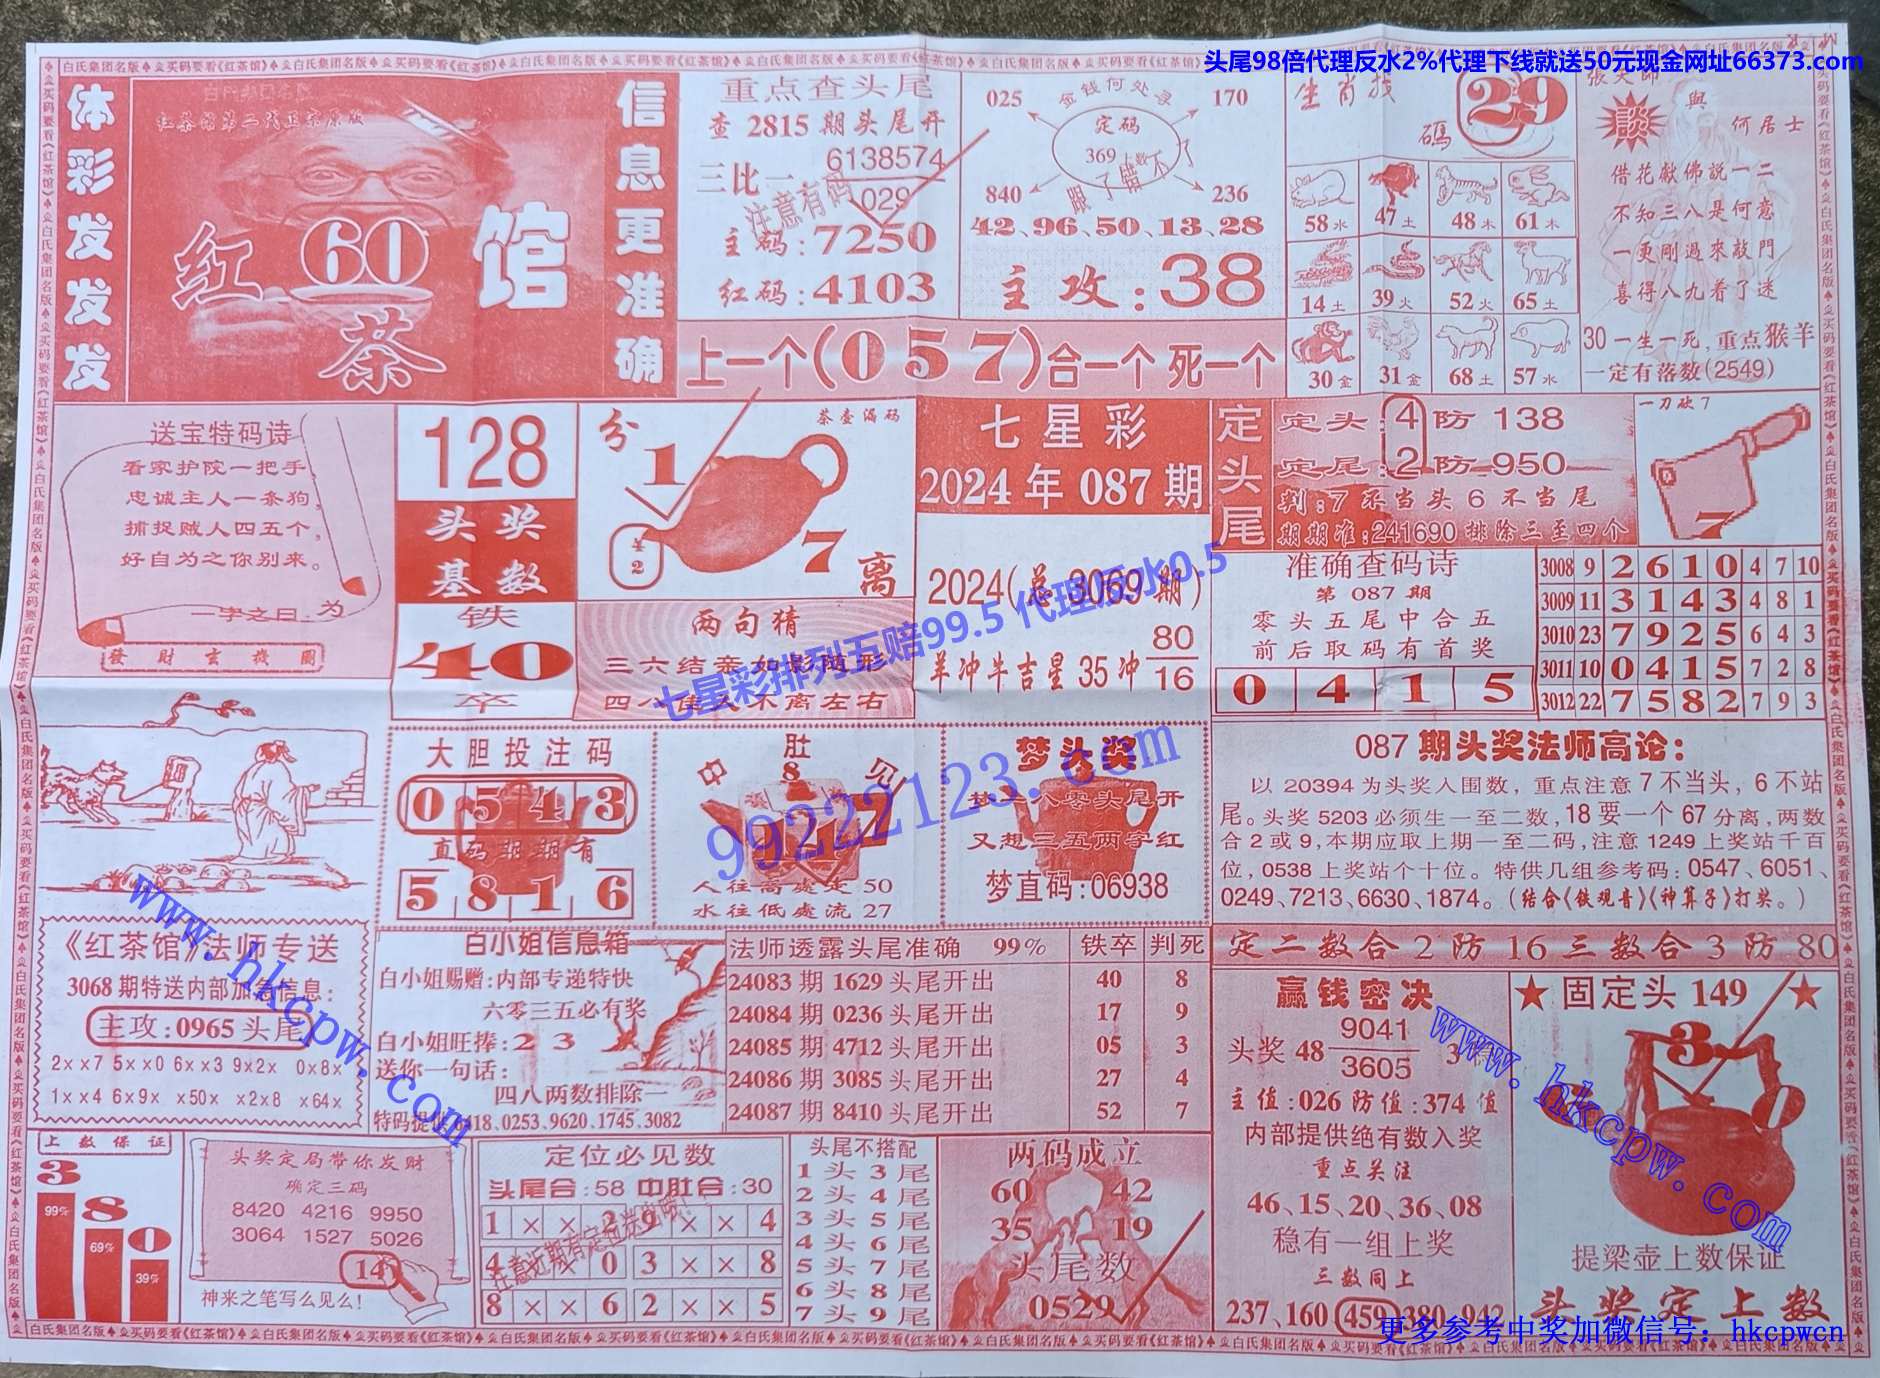 头尾98倍代理反水2%代理下线就送50元现金网址66373.com
体彩发发发
白氏集团名版
红茶馆第二代正宗原版
红60馆
茶
信息更准确
重点查头尾
查2815期头尾开
三比一 6138574
029
注意有码
主码:7250
红码:4103
金钱何处寻
025 170
定码
369
840 236
42、96、50、13、28
主攻:38
上一个(057)合一个 死一个
生肖找
碼
29
58水 47土 48木 61木
14土 39火 52火 65土
30金 31金 68土 57水
張天師
與
談 何居士
借花献佛説一二
不知三八是何意
一更剛過來敲門
喜得八九着了迷
30一生一死,重点猴羊
一定有落数(2549)
送宝特码诗
看家护院一把手,
忠诚主人一条狗,
捕捉贼人四五个,
好自为之你别来。
一字之曰:为
發財玄機圖
128
头奖
基数
铁
40
卒
分
茶壶漏码
1
7
离
两句猜
三六结亲如影随形
七星彩
2024年087期
2024(总3069期)
羊冲牛吉星35冲 80
16
七星彩排列五赔99.5 代理反水0.5
定头尾
定头:4防138
定尾:2防950
判:7不当头6不当尾
期期准:241690排除三至四个
一刀砍7
7
准确查码诗
第087期
零头五尾中合五
前后取码有首奖
0 4 1 5
3008 9 2 6 1 0 4 7 10
3009 11 3 1 4 3 4 8 1
3010 23 7 9 2 5 6 4 3
3011 10 0 4 1 5 7 2 8
3012 22 7 5 8 2 7 9 3
大胆投注码
0 5 4 3
直码期期有
5 8 1 6
中肚见
8
人往高處走50
水往低處流27
梦头奖
又想三五两字红
梦直码:06938
99222123.com
087期头奖法师高论:
以20394为头奖入围数,重点注意7不当头,6不站
尾。头奖5203必须生一至二数,18要一个67分离,两数
合2或9,本期应取上期一至二码,注意1249上奖站千百
位,0538上奖站个十位。特供几组参考码:0547、6051、
0249、7213、6630、1874。(结合《铁观音》《神算子》打奖。)
《红茶馆》法师专送
3068期特送内部加急信息:
主攻:0965头尾
2××7 5××0 6××3 9×2× 0×8×
1××4 6×9× ×50× ×2×8 ×64×
www.hkcpw.com
白小姐信息箱
白小姐赐赠:内部专递特快
六零三五必有奖
白小姐旺捧:2 3
送你一句话:
四八两数排除一
0253.9620.1745.3082
法师透露头尾准确 99% 铁卒 判死
24083期1629头尾开出 40 8
24084期0236头尾开出 17 9
24085期4712头尾开出 05 3
24086期3085头尾开出 27 4
24087期8410头尾开出 52 7
定二数合2防16三数合3防80
赢钱密决
头奖48 9041
3605
主值:026防值:374值
内部提供绝有数入奖
重点关注
46、15、20、36、08
稳有一组上奖
三数同上
237、160 459 380 942
固定头149
3
0
提梁壶上数保证
头奖定上数
www.hkcpw.com
上数保证
3 8 0
99% 69% 39%
头奖定局带你发财
确定三码
8420 4216 9950
3064 1527 5026
14
神来之笔写么见么!
定位必见数
头尾合:58 中肚合:30
1 × × 2 9 × × 4
4 × × 0 3 × × 8
8 × × 6 2 × × 5
头尾不搭配
1头3尾
2头4尾
3头5尾
4头6尾
5头7尾
6头8尾
7头9尾
两码成立
60 42
35 19
头尾数
0529
更多参考中奖加微信号：hkcpwcn